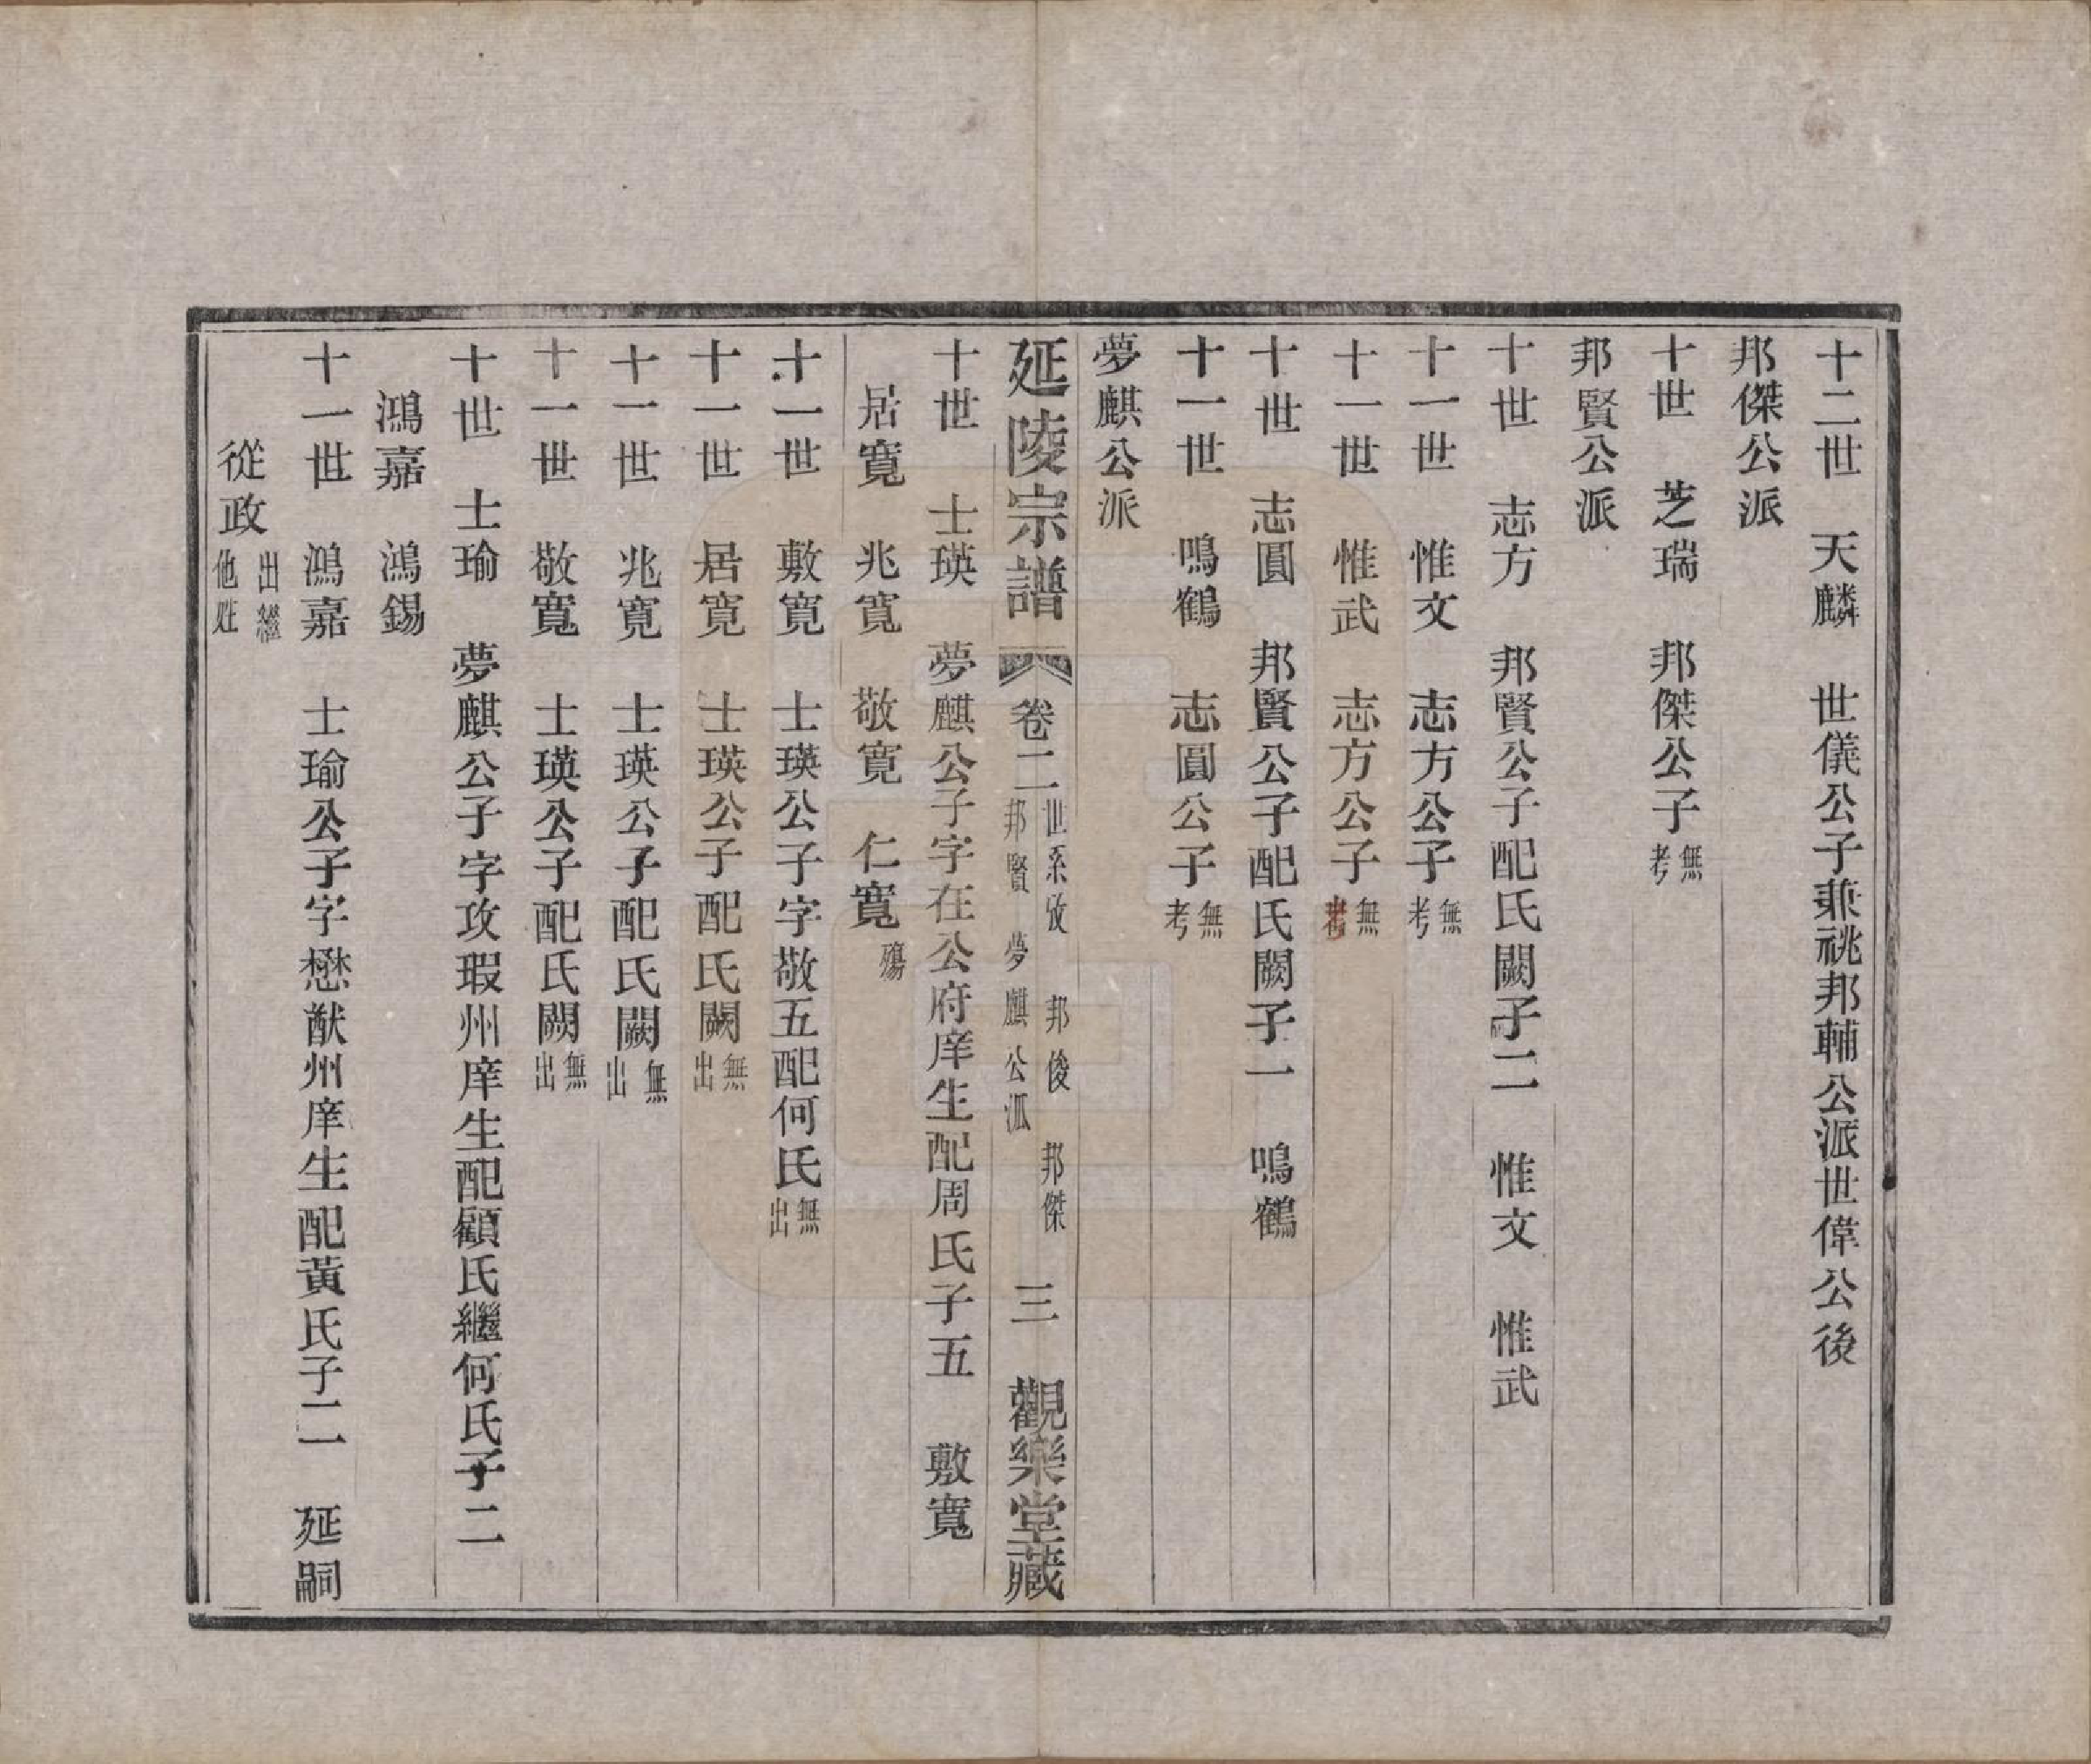 十二世 天麟 世儀公子兼祧邦輔公派世偉公後
邦傑公派
十世 芝瑞 邦傑公子無考
邦賢公派
十世 志方 邦賢公子配氏闕子二 惟文 惟武
十一世 惟文 志方公子無考
十一世 惟武 志方公子無考
十世 志圓 邦賢公子配氏闕子一 鳴鶴
十一世 鳴鶴 志圓公子無考
夢麒公派
延陵宗譜 卷二 世系攷 邦俊 邦傑 邦賢 夢麒公派 三 觀樂堂藏
十世 士瑛 夢麒公子字在公府庠生配周氏子五 敷寬
居寬 兆寬 敬寬 仁寬殤
十一世 敷寬 士瑛公子字敬五配何氏無出
十一世 居寬 士瑛公子配氏闕無出
十一世 兆寬 士瑛公子配氏闕無出
十一世 敬寬 士瑛公子配氏闕無出
十世 士瑜 夢麒公子字攻瑕州庠生配顧氏繼何氏子二
鴻嘉 鴻錫
十一世 鴻嘉 士瑜公子字懋猷州庠生配黃氏子二 延嗣
從政出繼他姓